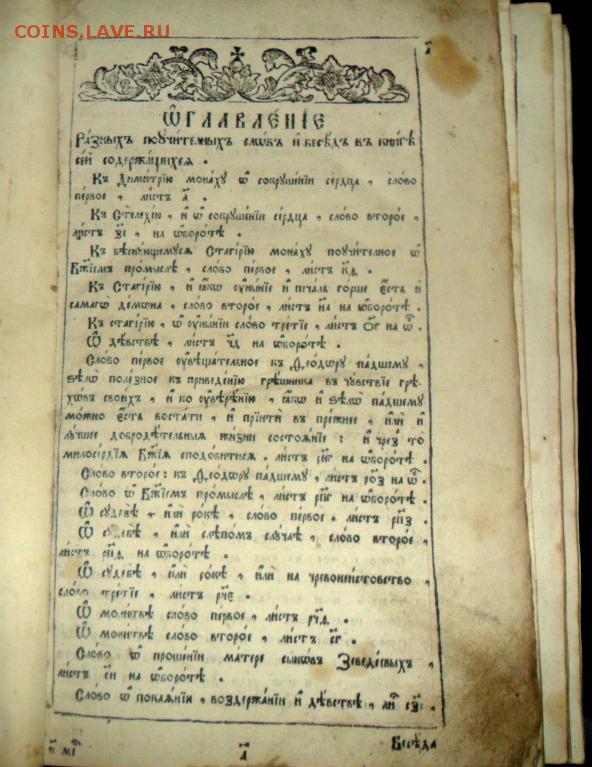 COINS.LAVE.RU
а҃
Ѡ҆ГЛАВЛЕ́НЇЕ
Ра́зныхъ поꙋчи́тельныхъ сло́въ и҆ бесѣ́дъ въ кни́гѣ
се́й содержа́щихсѧ .
Къ Дими́трїю мона́хꙋ ѡ҆ сокрꙋше́нїи се́рдца , сло́во
пе́рвое , ли́стъ а҃ .
Къ Стеле́хїю , и҆ ѡ҆ сокрꙋше́нїи се́рдца , сло́во второ́е ,
ли́стъ на ѡ҆боро́тѣ .
Къ бѣснꙋ́ющемꙋсѧ Стагі́рїю мона́хꙋ поꙋчи́тельное ѡ҆
Бж҃їемъ про́мыслѣ , сло́во пе́рвое , ли́стъ
Къ Стагі́рїю , и҆ ꙗ҆́кѡ ᲂу҆ны́нїе и҆ печа́ль го́рше є҆́сть и҆
самагѡ̀ де́мѡна , сло́во второ́е , ли́стъ н҃а на ѡ҆боро́тѣ .
Къ стагі́рїю , ѡ҆ ᲂу҆ны́нїи сло́во тре́тїе , ли́стъ о҃г на ѡ҆́б .
Ѡ҆ дѣ́вствѣ , ли́стъ ч҃д на ѡ҆боро́тѣ .
Сло́во пе́рвое ᲂу҆вѣща́тельное къ Ѳео́дѡрꙋ па́дшемꙋ ,
ѕѣлѡ̀ поле́зное къ приведе́нїю грѣ́шника въ чꙋ́вствїе грѣ-
хѡ́въ свои́хъ , и҆ ко ᲂу҆вѣре́нїю , ꙗ҆́кѡ и҆ ѕѣлѡ̀ па́дшемꙋ
мо́жно є҆́сть воста́ти , и҆ прїитѝ въ пре́жнее , и҆лѝ и҆
лꙋ́чшее добродѣ́тельныѧ жи́зни состоѧ́нїе : и҆ чре́з то̀
милосе́рдїѧ Бж҃їѧ сподо́битисѧ . ли́стъ рн҃г на ѡ҆боро́тѣ .
Сло́во второ́е : къ Ѳео́дѡрꙋ па́дшемꙋ , ли́стъ ро҃з на ѡ҆́б .
Сло́во ѡ҆ Бж҃їемъ про́мыслѣ , ли́стъ рп҃г на ѡ҆боро́тѣ .
Ѡ҆ сꙋдьбѣ̀ , и҆лѝ ро́кѣ , сло́во пе́рвое . ли́стъ рп҃з .
Ѡ҆ сꙋдьбѣ̀ , и҆лѝ слѣпо́мъ слꙋ́чаѣ , сло́во второ́е ,
ли́стъ на ѡ҆боро́тѣ .
Ѡ҆ сꙋдьбѣ̀ , и҆лѝ ро́кѣ , и҆лѝ на чревонеи́стовство ,
сло́во тре́тїе , ли́стъ
Ѡ҆ моли́твѣ сло́во пе́рвое , ли́стъ
Ѡ҆ моли́твѣ сло́во второ́е , ли́стъ с҃г .
Сло́во ѡ҆ проше́нїи ма́тере сынѡ́въ Зеведе́овыхъ ,
ли́стъ с҃и на ѡ҆боро́тѣ .
Сло́во ѡ҆ покаѧ́нїи , воздержа́нїи и҆ дѣ́вствѣ ,
а҃
Бесѣ́да